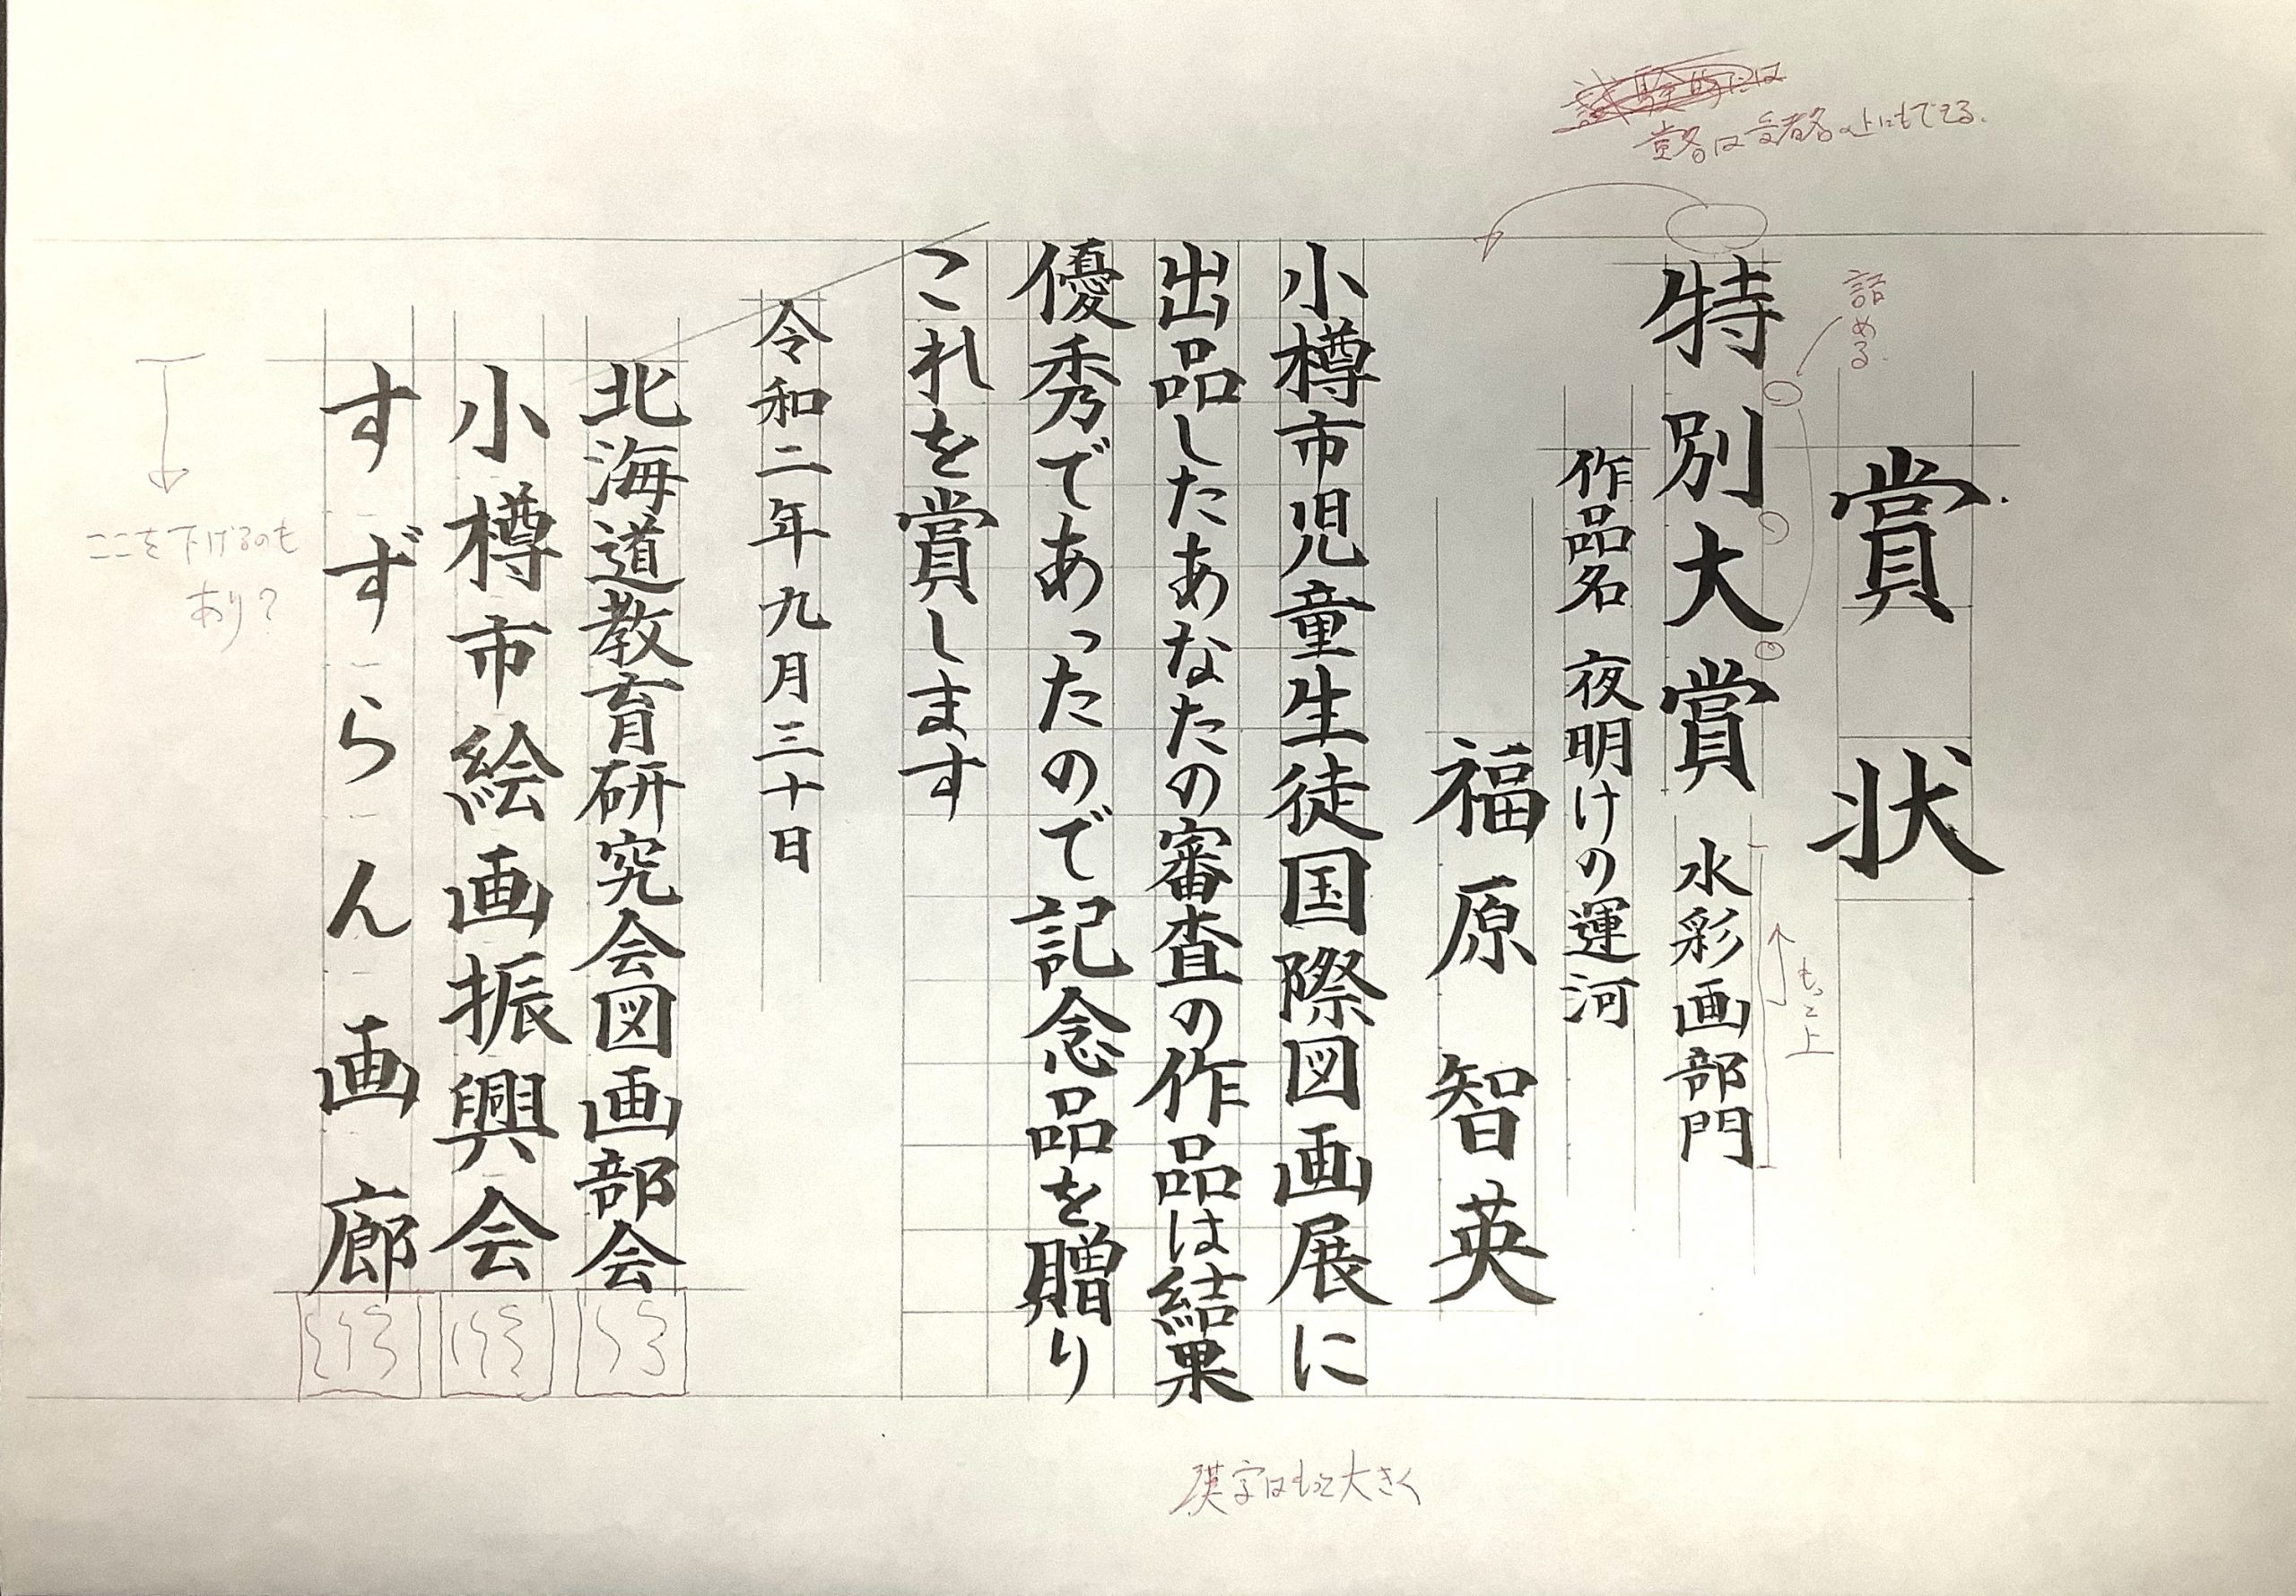 賞状
特別大賞 水彩画部門
作品名 夜明けの運河
福原智英
小樽市児童生徒国際図画展に
出品したあなたの審査の作品は結果
優秀であったので記念品を贈り
これを賞します
令和二年九月三十日
北海道教育研究会図画部会
小樽市絵画振興会
すずらん画廊
試験的には
賞名は受者名の上にもできる.
詰める.
もっと上
ここを下げるのも
あり?
漢字はもっと大きく